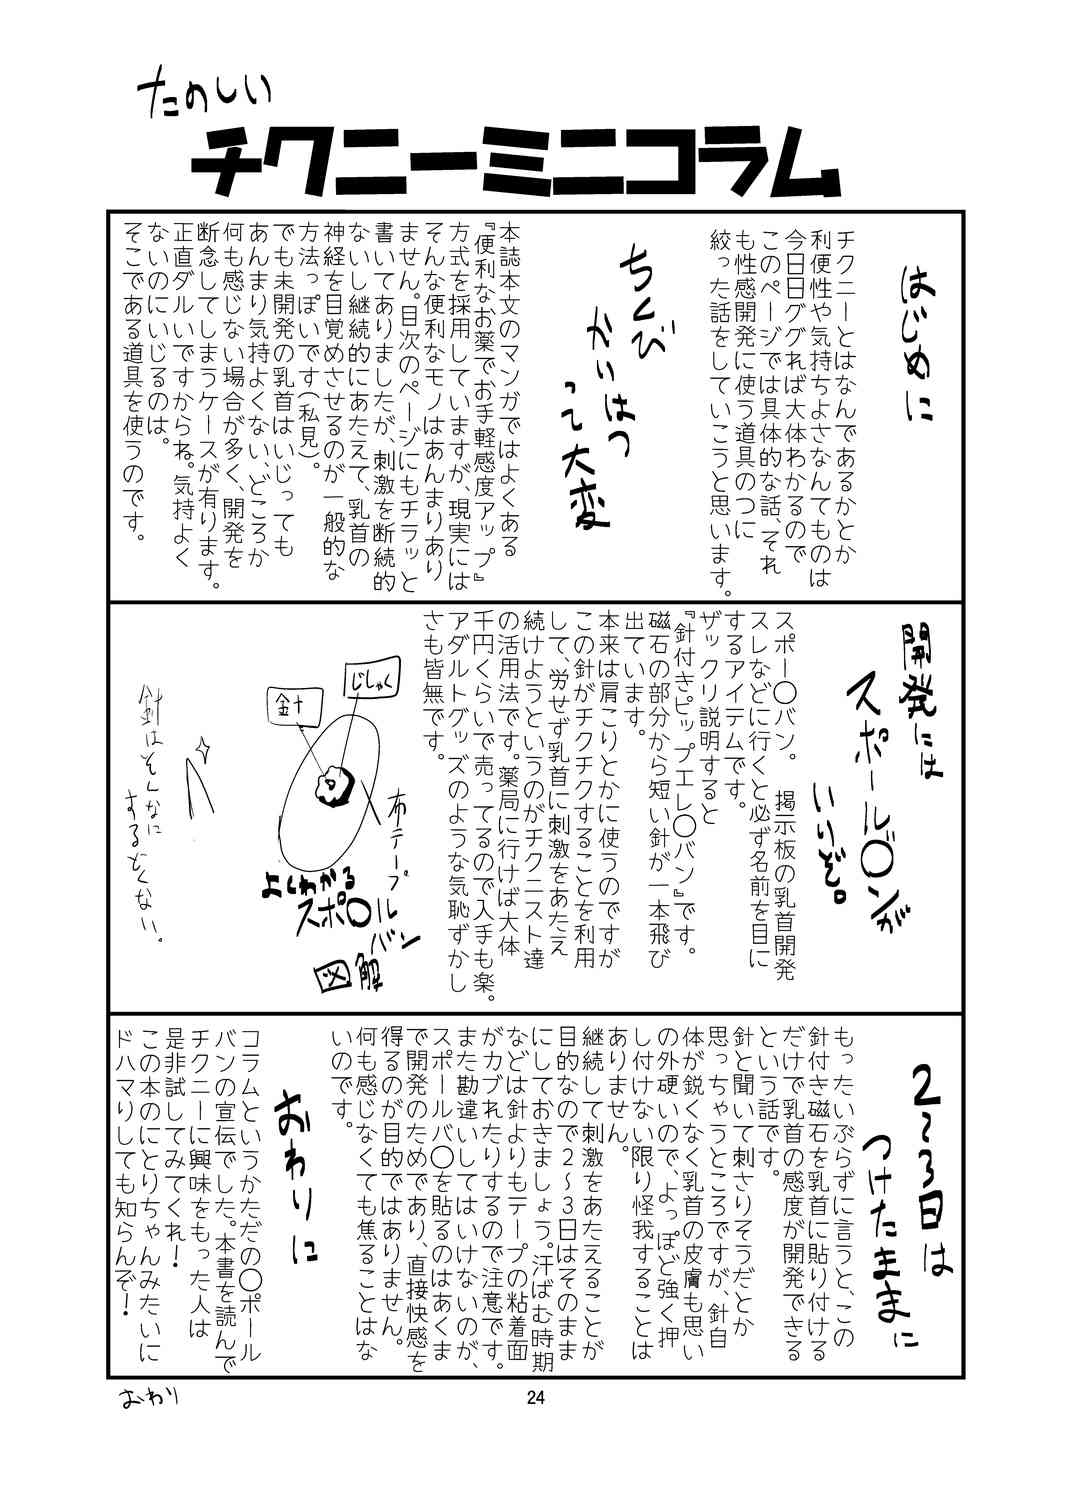 たのしい
チクニーミニコラム
はじめに
チクニーとはなんであるかとか
利便性や気持ちよさなんてものは
今日日ググれば大体わかるので
このページでは具体的な話、それ
も性感開発に使う道具のつに
絞った話をしていこうと思います。
ちくび
かいはつ
って大変
本誌本文のマンガではよくある
『便利なお薬でお手軽感度アップ』
方式を採用していますが、現実には
そんな便利なモノはあんまりあり
ません。目次のページにもチラッと
書いてありましたが、刺激を断続的
ないし継続的にあたえて、乳首の
神経を目覚めさせるのが一般的な
方法っぽいです(私見)。
でも未開発の乳首はいじっても
あんまり気持よくない、どころか
何も感じない場合が多く、開発を
断念してしまうケースが有ります。
正直ダルいですからね。気持よく
ないのにいじるのは。
そこである道具を使うのです。
開発には
スポール〇ンが
いりぞ。
スポー〇バン。 掲示板の乳首開発
スレなどに行くと必ず名前を目に
するアイテムです。
ザックリ説明すると
『針付きピップエレ〇バン』です。
磁石の部分から短い針が一本飛び
出ています。
本来は肩こりとかに使うのですが
この針がチクチクすることを利用
して、労せず乳首に刺激をあたえ
続けようというのがチクニスト達
の活用法です。薬局に行けば大体
千円くらいで売ってるので入手も楽。
アダルトグッズのような気恥ずかし
さも皆無です。
じしゃく
針
布テープ
よくわかる
スポ〇ル
バン
図解
針はそんなに
するどくない。
2〜3日は
つけたままに
もったいぶらずに言うと、この
針付き磁石を乳首に貼り付ける
だけで乳首の感度が開発できる
という話です。
針と聞いて刺さりそうだとか
思っちゃうところですが、針自
体が鋭くなく乳首の皮膚も思い
の外硬いので、よっぽど強く押
し付けない限り怪我することは
ありません。
継続して刺激をあたえることが
目的なので2〜3日はそのまま
にしておきましょう。汗ばむ時期
などは針よりもテープの粘着面
がカブれたりするので注意です。
また勘違いしてはいけないのが、
スポールバ〇を貼るのはあくま
で開発のためであり、直接快感を
得るのが目的ではありません。
何も感じなくても焦ることはな
いのです。
おわりに
コラムというかただの〇ポール
バンの宣伝でした。本書を読んで
チクニーに興味をもった人は
是非試してみてくれ!
この本のにとりちゃんみたいに
ドハマりしても知らんぞ!
おわり
24